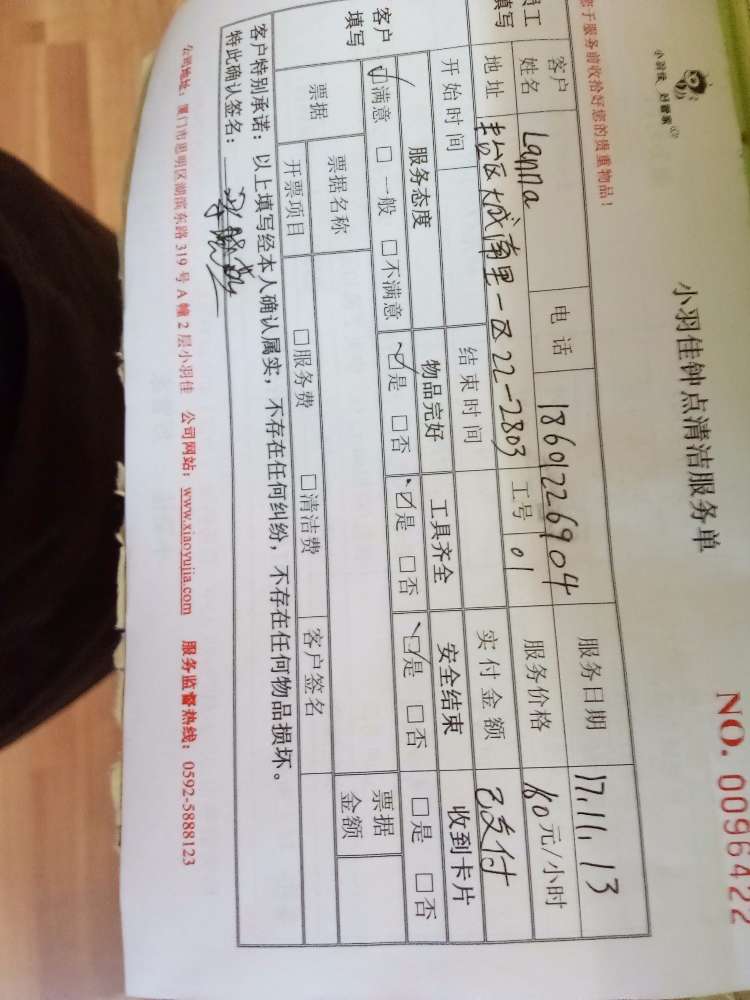 小羽佳 好管家
NO. 0096422
小羽佳钟点清洁服务单
您于服务前收拾好您的贵重物品！
员工填写 客户姓名 Lanna 电话 18601226904 服务日期 17.11.13
地址 城南里一区22-2803 工号 01 服务价格 元/小时
开始时间 结束时间 实付金额 已支付
客户填写 服务态度 物品完好 工具齐全 安全结束 收到卡片
☑满意 □一般 □不满意 ☑是 □否 ☑是 □否 ☑是 □否 □是 □否
票据 票据名称 票据金额
开票项目 □服务费 □清洁费 客户签名
客户特别承诺：以上填写经本人确认属实，不存在任何纠纷，不存在任何物品损坏。
特此确认签名：
公司地址：厦门市思明区湖滨东路 319 号 A 幢 2 层小羽佳 公司网站：www.xiaoyujia.com 服务监督热线：0592-5888123